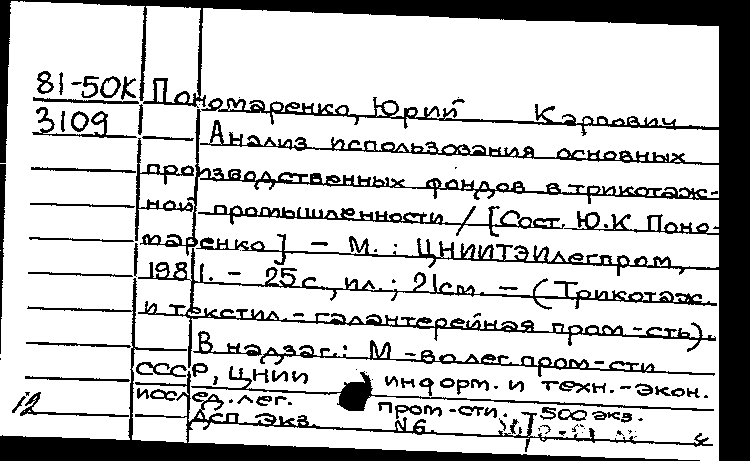 81-50К Пономаренко, Юрий Карпович
3109 Анализ использования основных
производственных фондов в трикотаж-
ной промышленности / [Сост. Ю.К. Поно-
маренко] - М. : ЦНИИТЭИлегпром,
1981. - 25 с., ил.; 21 см. - (Трикотаж.
и текстил.-галантерейная пром-сть).
В надзаг.: М-во лег. пром-сти
СССР, ЦНИИ информ. и техн.-экон.
исслед. лег. пром-сти. 500 экз.
12 ДСП. Экз. №6.